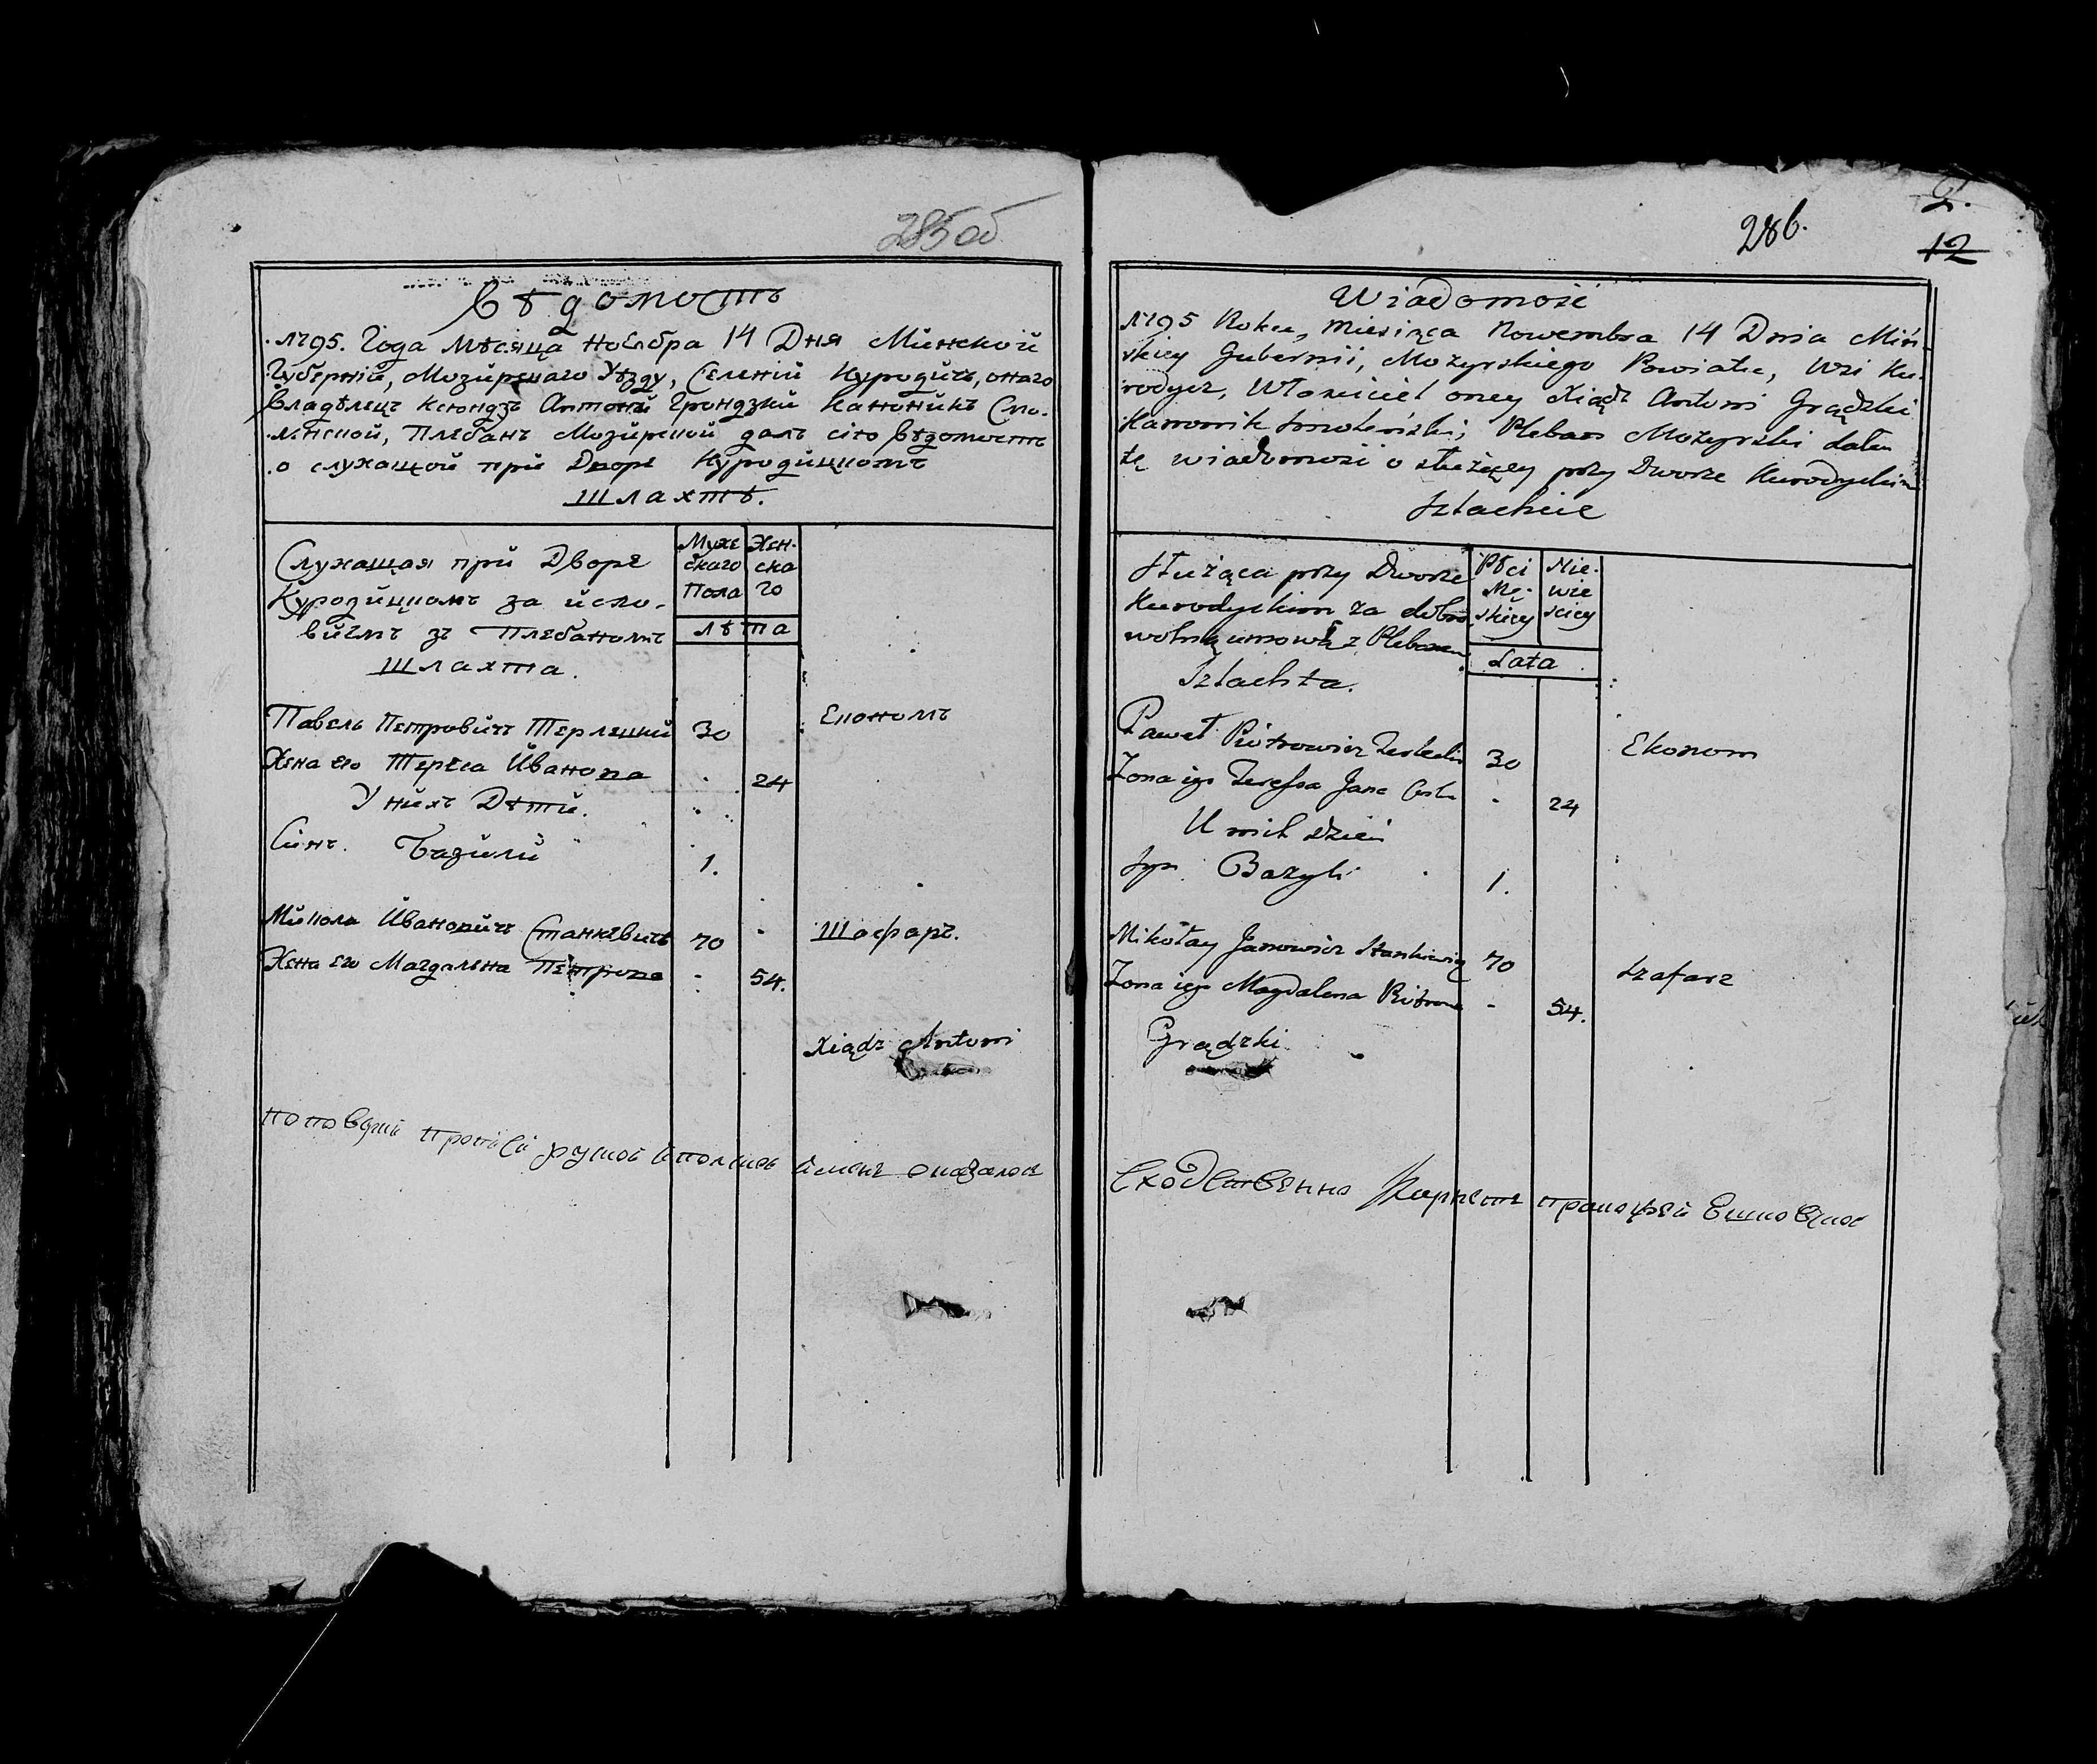 285об
Вѣдомость
1795. Года Мѣсяца Ноября 14 Дня Минской
Губерній, Мозирскаго Уѣзду, Селеній Куродичъ, онаго
Владѣлецъ Ксіондзъ Антоній Грондзкій Каноникъ Смо-
ленской, Плебанъ Мозирской далъ сію вѣдомость
о служащой при Дворѣ Куродицкомъ
Шляхтѣ.
Служащая при Дворѣ
Куродицкомъ за
зъ Плебаномъ
Шляхта.
Муже
скаго
Пола
Жен-
ска
го
лѣта
Павелъ Петровичъ Терлецкий 30 Економъ
Жена его Тереса Иванова 24
У нихъ Дѣти.
Синъ. Базили 1.
Микола Ивановичъ Станкевичъ 70 Шафаръ.
Жена его Магдалена Петрова 54.
Xiądz Antoni
286.
2.
12
Wiadomość
1795 Roku, Miesiąca Nowembra 14 Dnia Miń-
skiey Gubernii, Mozyrskiego Powiatu, Wsi Ku-
rodycz, Własciciel oney Xiądz Antoni Grądzki
Kanonik Smoleński, Pleban Mozyrski dałem
tę wiadomość o służącey przy Dworze Kurodyckim
Szlachcie
Służąca przy Dworze
Kurodyckim za dobro
wolną umową z Plebanem
Szlachta.
Płci
Mę-
skiey
Nie-
wie
sciey
Lata
Paweł Piotrowicz Terlecki 30 Ekonom
Zona iego Teressa Jana 24
U nich dzieci
Syn Bazyli 1.
Mikołay Janowicz Stankiewicz 70 Szafarz
Zona iego Magdalena Piotrowa 54.
Grądzki